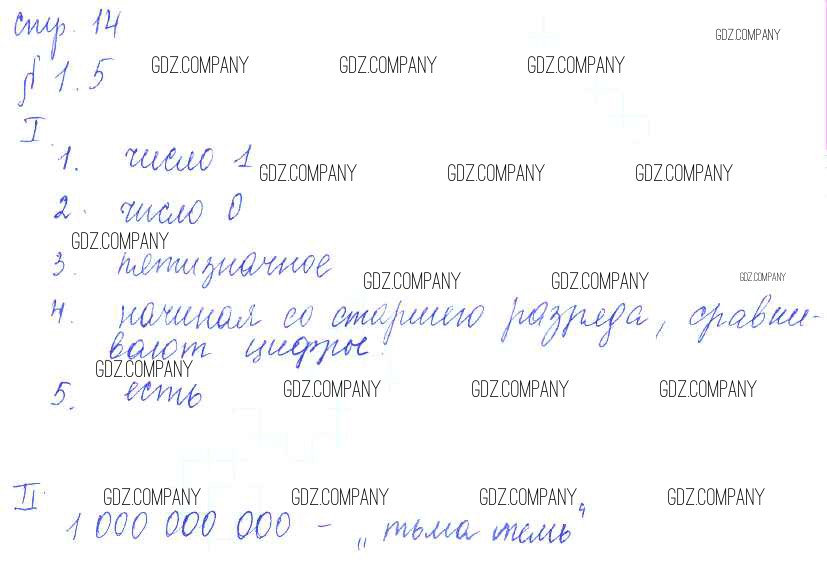 стр. 14
GDZ.COMPANY
§ 1.5 GDZ.COMPANY GDZ.COMPANY GDZ.COMPANY
I.
1. число 1
GDZ.COMPANY GDZ.COMPANY GDZ.COMPANY
2. число 0
GDZ.COMPANY
3. пятизначное
GDZ.COMPANY GDZ.COMPANY GDZ.COMPANY
4. начиная со старшего разряда, сравни-
вают цифры.
GDZ.COMPANY
5. есть GDZ.COMPANY GDZ.COMPANY GDZ.COMPANY
II. GDZ.COMPANY GDZ.COMPANY GDZ.COMPANY GDZ.COMPANY
1 000 000 000 - „тьма темь“